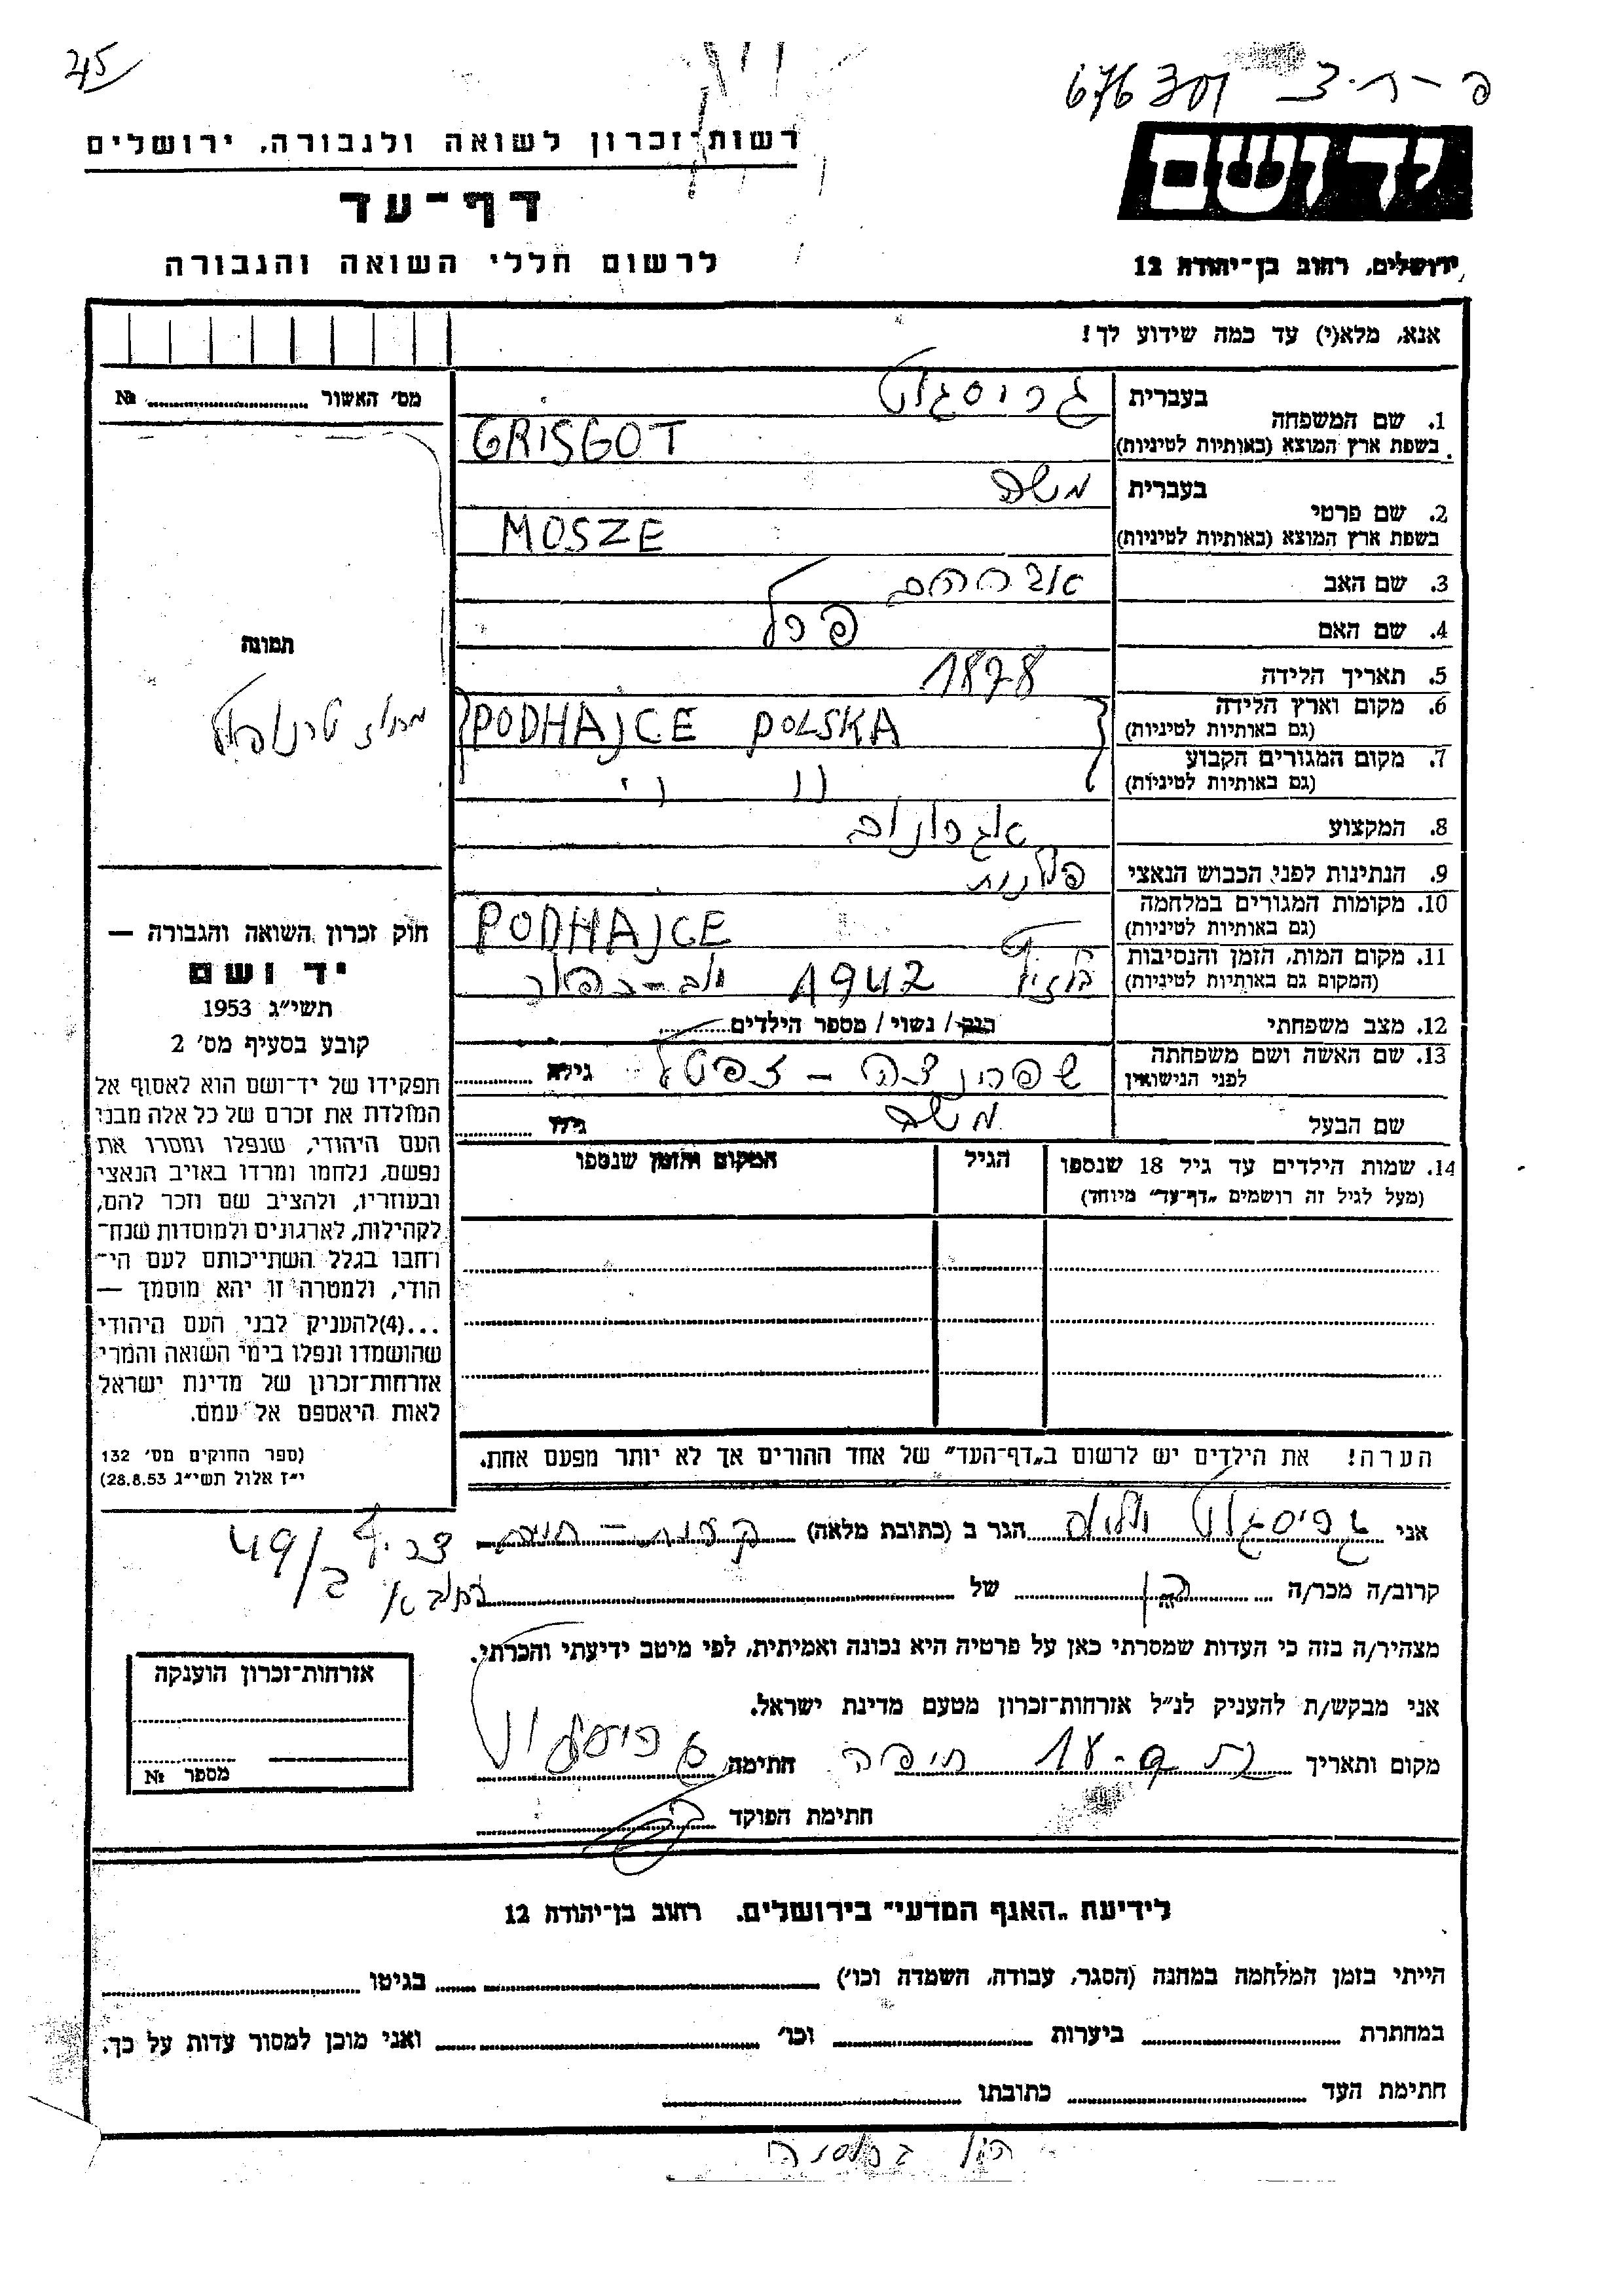 45
676301
רשות־זכרון לשואה ולגבורה, ירושלים
יד ושם
דף־עד
לרשום חללי השואה והגבורה
ירושלים, רחוב בן־יהודה 12
אנא, מלא(י) עד כמה שידוע לך!
מס' האשור № 
1. שם המשפחה בעברית גריסגוט
בשפת ארץ המוצא (באותיות לטיניות) GRISGOT
2. שם פרטי בעברית משה
בשפת ארץ המוצא (באותיות לטיניות) MOSZE
3. שם האב אברהם
4. שם האם פרל
5. תאריך הלידה 1878
6. מקום וארץ הלידה (גם באותיות לטיניות) PODHAJCE POLSKA
7. מקום המגורים הקבוע (גם באותיות לטיניות) " "
8. המקצוע אגרונום
9. הנתינות לפני הכבוש הנאצי פולנית
10. מקומות המגורים במלחמה (גם באותיות לטיניות) PODHAJCE
11. מקום המות, הזמן והנסיבות (המקום גם באותיות לטיניות) 1942
12. מצב משפחתי רווק / נשוי / מספר הילדים
13. שם האשה ושם משפחתה לפני הנישואין שפרינצה – גילה
שם הבעל משה גילו
14. שמות הילדים עד גיל 18 שנספו הגיל המקום והזמן שנספו
(מעל לגיל זה רושמים „דף־עד" מיוחד)
הערה! את הילדים יש לרשום ב„דף־העד" של אחד ההורים אך לא יותר מפעם אחת.
תמונה
מחוז טרנופול
חוק זכרון השואה והגבורה —
יד ושם
תשי"ג 1953
קובע בסעיף מס' 2
תפקידו של יד־ושם הוא לאסוף אל
המולדת את זכרם של כל אלה מבני
העם היהודי, שנפלו ומסרו את
נפשם, נלחמו ומרדו באויב הנאצי
ובעוזריו, ולהציב שם וזכר להם,
לקהילות, לארגונים ולמוסדות שנח־
רחבו בגלל השתייכותם לעם הי־
הודי, ולמטרה זו יהא מוסמך —
...(4)להעניק לבני העם היהודי
שהושמדו ונפלו בימי השואה והמרי
אזרחות־זכרון של מדינת ישראל
לאות היאספם אל עמם.
(ספר החוקים מס' 132
י"ז אלול תשי"ג 28.8.53)
אני גריסגוט הגר ב (כתובת מלאה) קרית־ חיים צריף 49/ב
קרוב/ה מכר/ה בן של
מצהיר/ה בזה כי העדות שמסרתי כאן על פרטיה היא נכונה ואמיתית, לפי מיטב ידיעתי והכרתי.
אני מבקש/ת להעניק לנ"ל אזרחות־זכרון מטעם מדינת ישראל.
מקום ותאריך חיפה חתימה גריסגוט
חתימת הפוקד
אזרחות־זכרון הוענקה
מספר №
לידיעת „האגף המדעי" בירושלים, רחוב בן־יהודה 12
הייתי בזמן המלחמה במחנה (הסגר, עבודה, השמדה וכו') בגיטו
במחתרת ביערות וכו' ואני מוכן למסור עדות על כך.
חתימת העד כתובתו